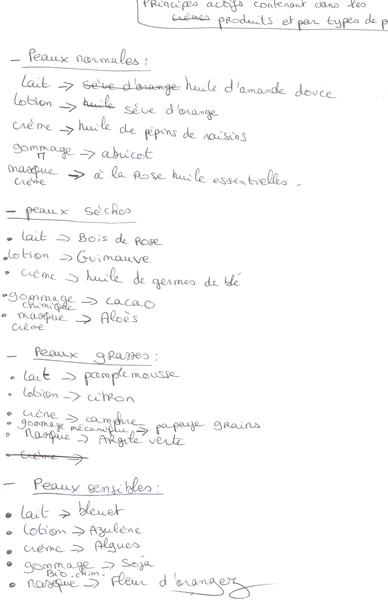 Principes actifs contenant dans les
crèmes produits et par types de p
- Peaux normales :
lait -> sève d'orange huile d'amande douce
lotion -> huile sève d'orange
crème -> huile de pépins de raisins
gommage -> abricot
masque -> à la rose huile essentielles.
crème
- peaux sèches
• lait -> Bois de rose
• lotion -> Guimauve
• crème -> huile de germes de blé
• gommage -> cacao
chimique
• masque -> Aloès
crème
- Peaux grasses :
• lait -> pamplemousse
• lotion -> citron
• crème -> camphre
• gommage mécanique -> papaye grains
• Masque -> Argile verte
• crème ->
- Peaux sensibles :
• lait -> bleuet
• lotion -> Azulène
• crème -> Algues
• gommage -> Soja
Bio-chim.
• masque -> Fleur d'oranger